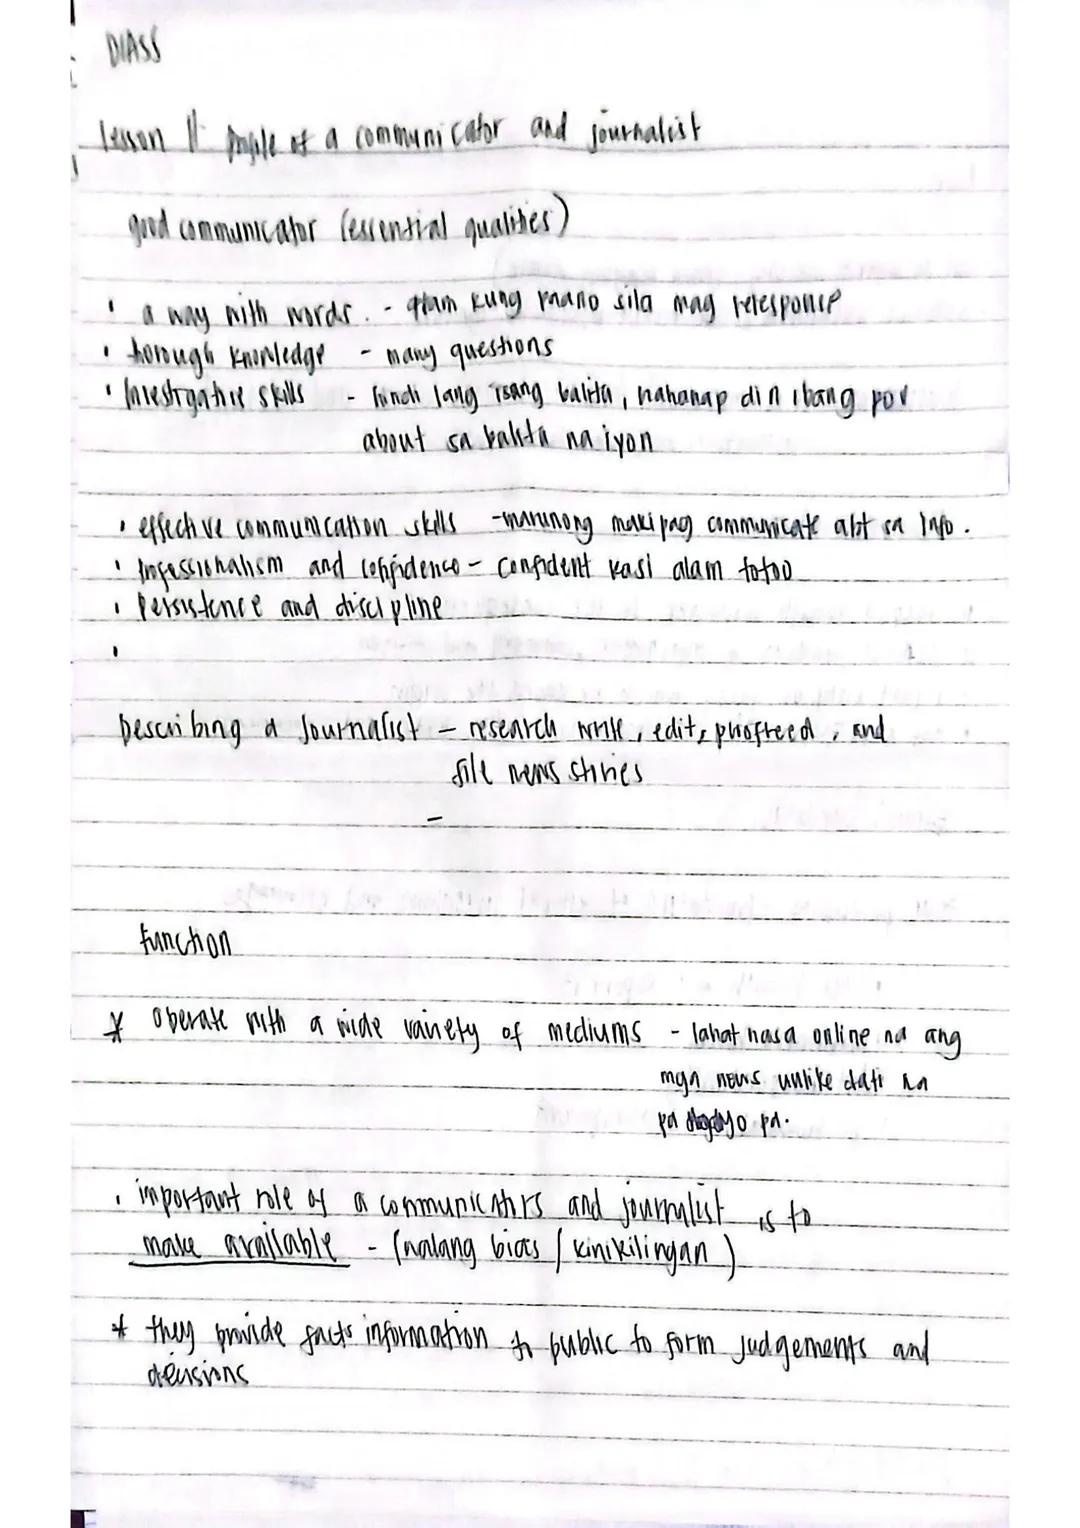 DIASS
lesson 11: of a communicator and journalist
good communicator (essential qualities)
• a way with words. - alam kung paano sila mag
• thorough knowledge - many questions
• Investigative skills - hindi lang isang balita, nahanap din ibang pov
about sa balita na iyon
• effective communication skills - marunong makipag communicate abt sa info.
• professionalism and confidence - confident kasi alam totoo
• Persistence and discipline
•
Describing a Journalist - research write, edit, proofreed, and
file news stories
-
function
* Operate with a wide vainety of mediums - lahat nasa online na ang
mga news unlike dati na
pa pa.
• important role of a communicators and journalist is to
make available - (walang bias / kinikilingan)
* they provide facts information to public to form judgements and
decisions